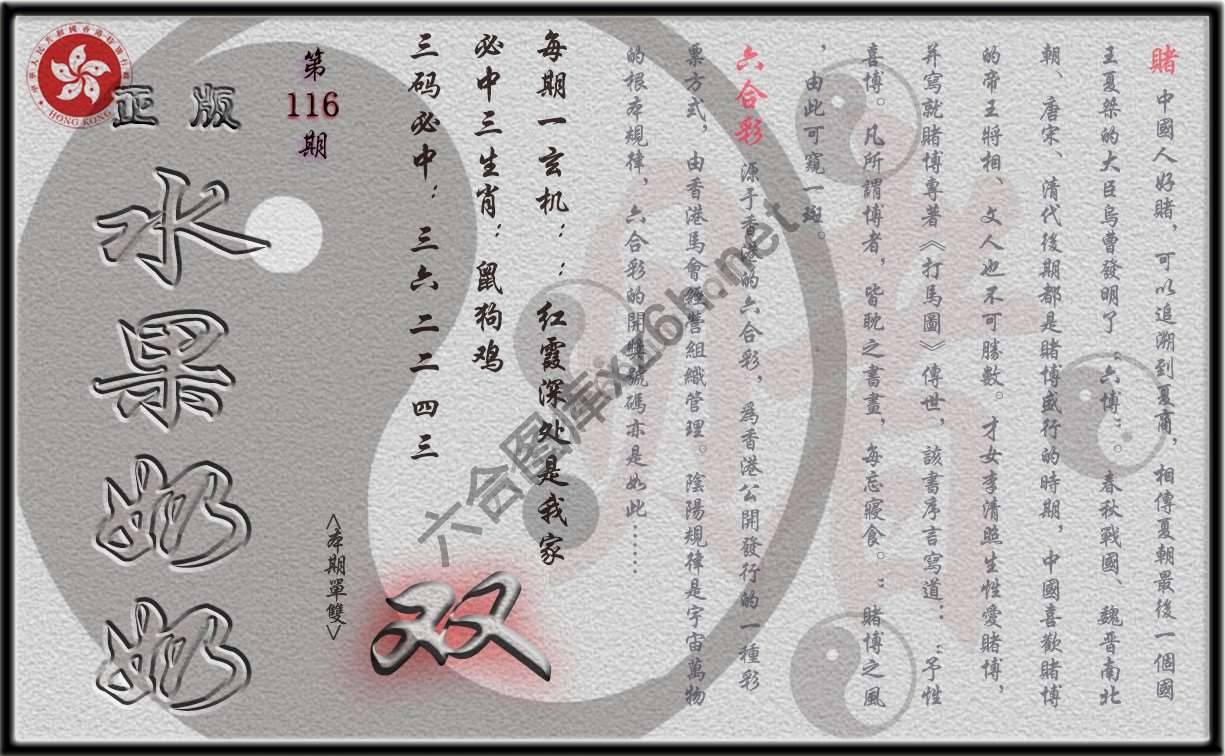 賭 中國人好賭，可以追溯到夏商，相傳夏朝最後一個國
王夏桀的大臣烏曹發明了“六博”。春秋戰國、魏晉南北
朝、唐宋、清代後期都是賭博盛行的時期，中國喜歡賭博
的帝王將相、文人也不可勝數。才女李清照生性愛賭博，
并寫就賭博專著《打馬圖》傳世，該書序言寫道：“予性
喜博。凡所謂博者，皆耽之晝，每忘寢食。”賭博之風
，由此可窺一斑。
六合彩 源于香港的六合彩，為香港公開發行的一種彩
票方式，由香港馬會經營組織管理。陰陽規律是宇宙萬物
的根本規律，六合彩的開獎號碼亦是如此……
每期一玄机：：红霞深处是我家
必中三生肖：鼠狗鸡
三码必中：三六 二二 四三
第
116
期
<本期單雙>
双
正版
水果奶奶
HONG KONG
六合图库xg16h.net